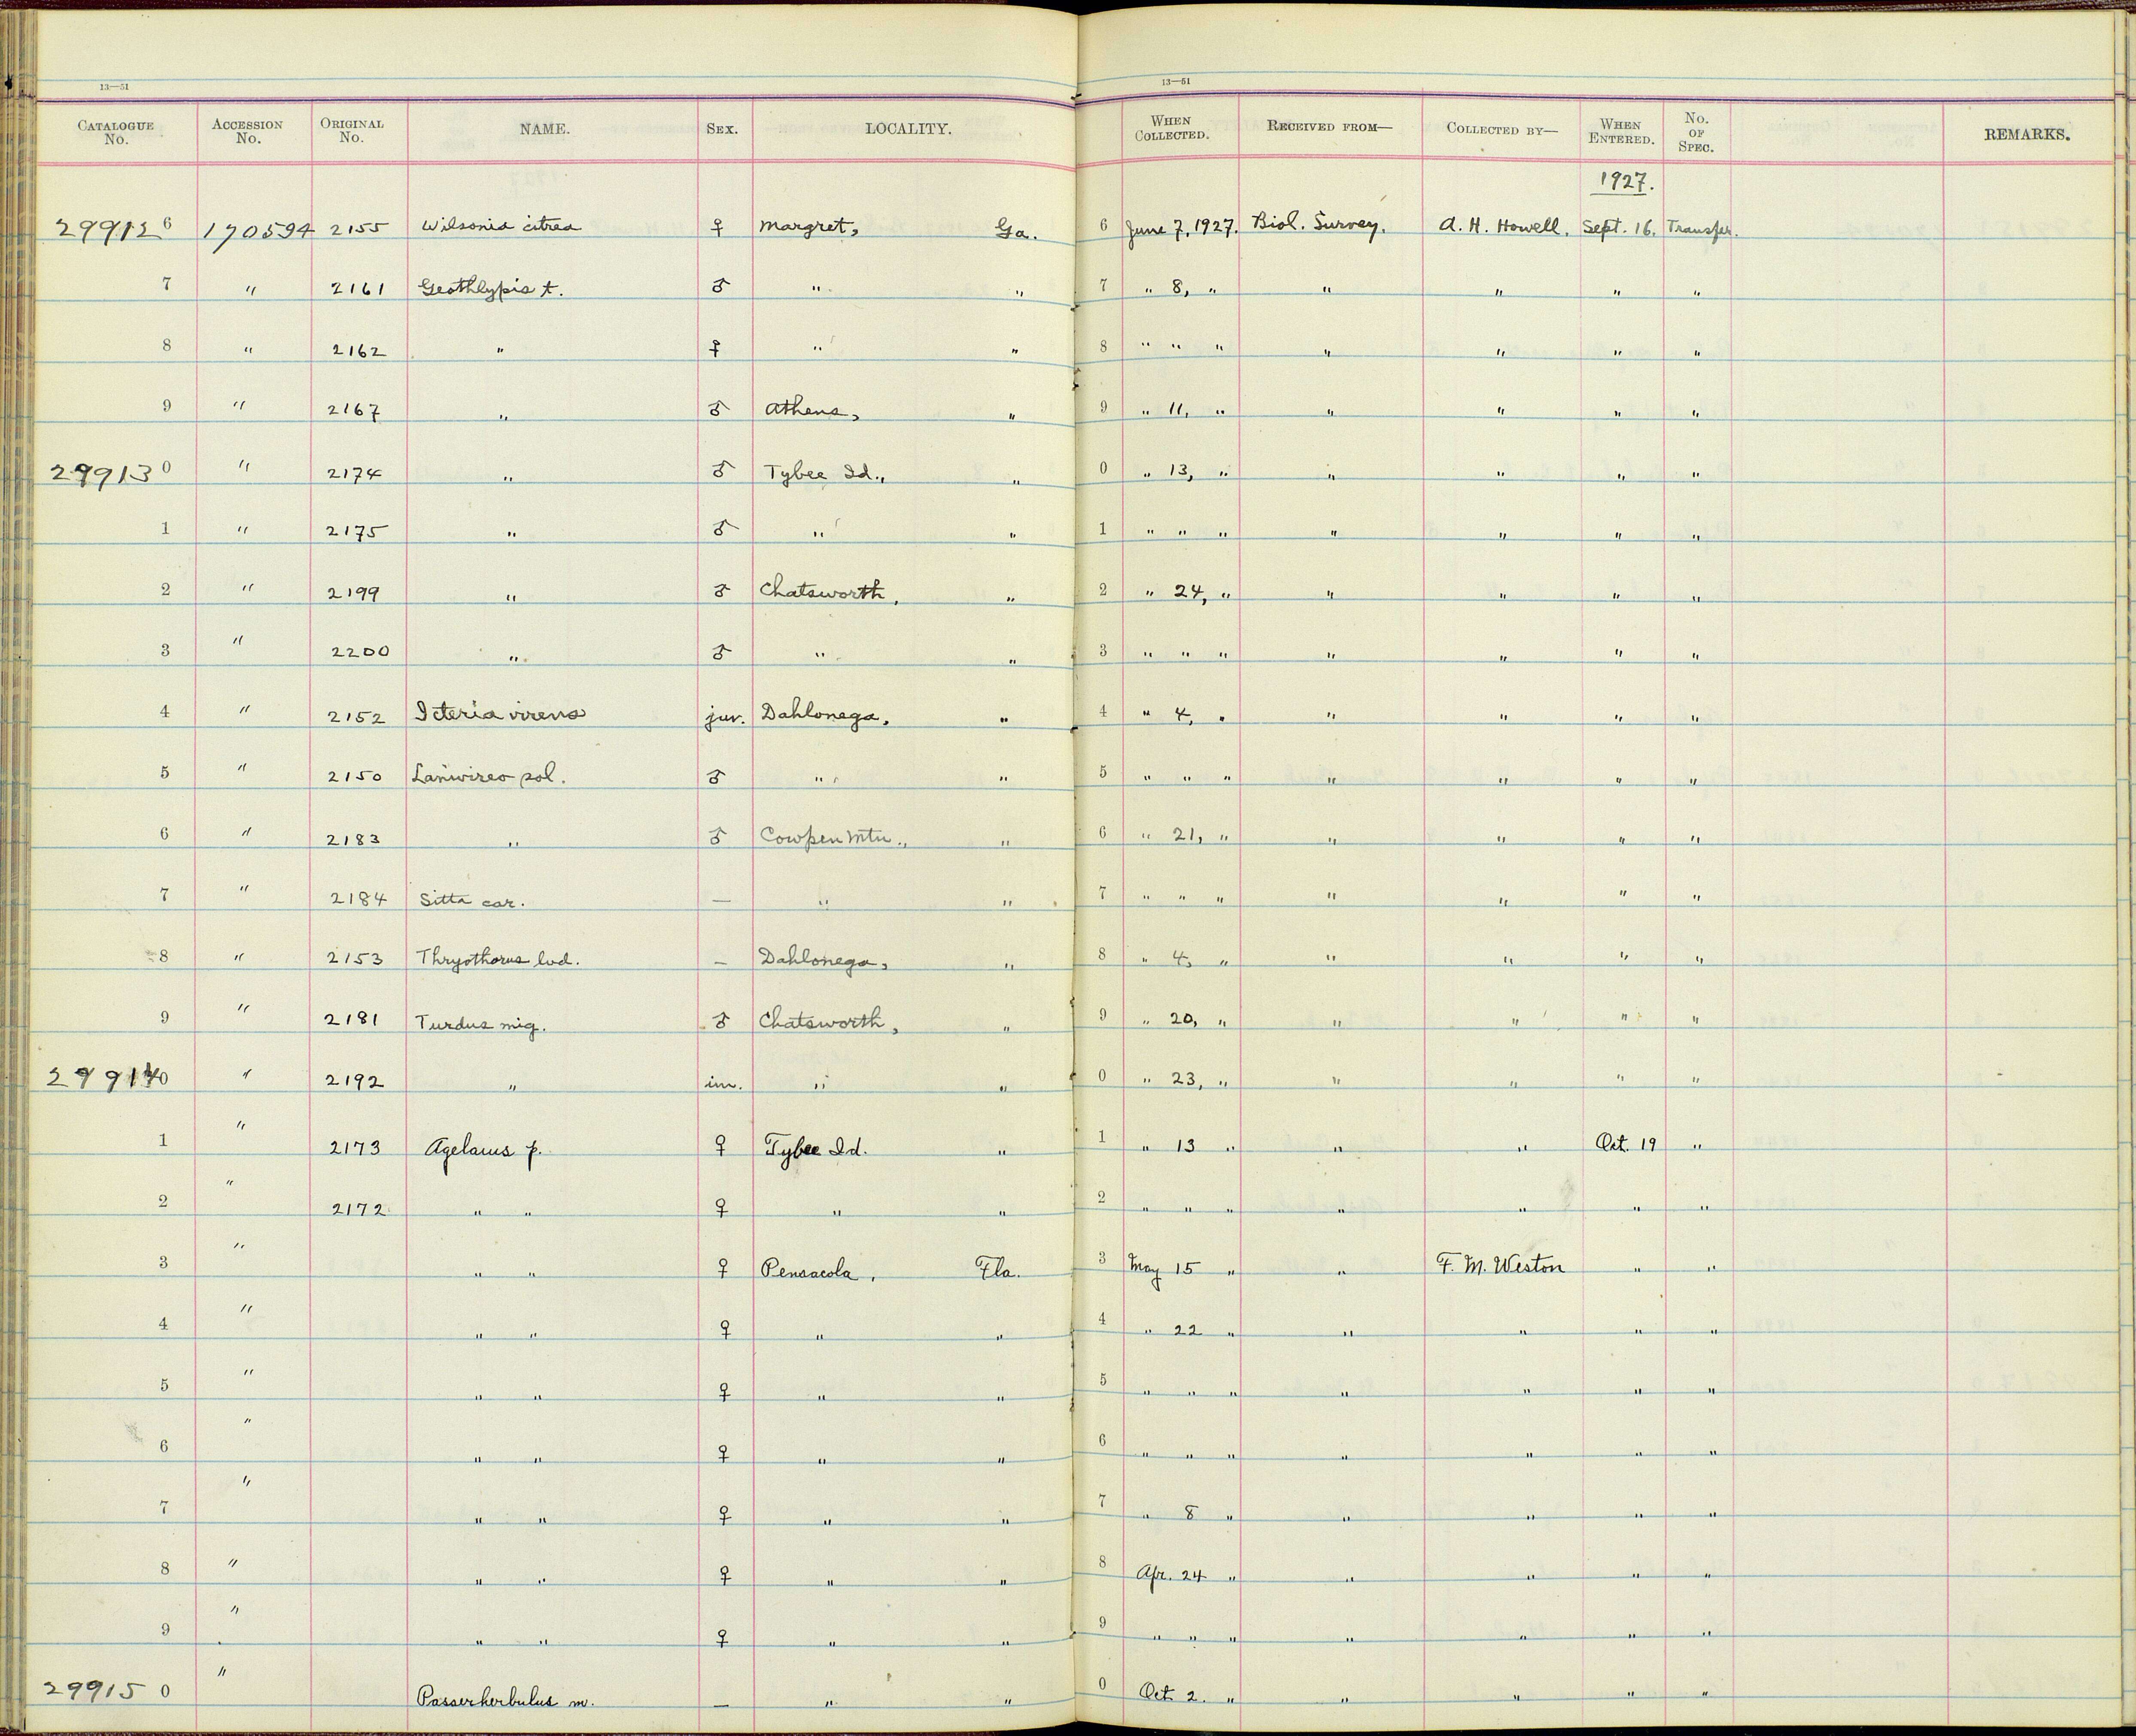 13—51 13—51
CATALOGUE No. ACCESSION No. ORIGINAL No. NAME. SEX. LOCALITY. WHEN COLLECTED. RECEIVED FROM— COLLECTED BY— WHEN ENTERED. No. OF SPEC. REMARKS.
1927.
29912 6 170594 2155 Wilsonia citrea ♀ Margret, Ga. 6 June 7, 1927. Biol. Survey. A. H. Howell. Sept. 16. Transfer.
7 " 2161 Geothlypis t. ♂ " " 7 " 8, " " " " "
8 " 2162 " ♀ " " 8 " " " " " " "
9 " 2167 " ♂ Athens, " 9 " 11, " " " " "
29913 0 " 2174 " ♂ Tybee Id., " 0 " 13, " " " " "
1 " 2175 " ♂ " " 1 " " " " " " "
2 " 2199 " ♂ Chatsworth, " 2 " 24, " " " " "
3 " 2200 " ♂ " " 3 " " " " " " "
4 " 2152 Icteria virens juv. Dahlonega, " 4 " 4, " " " " "
5 " 2150 Lanivireo sol. ♂ " " 5 " " " " " " "
6 " 2183 " ♂ Cowpen Mtn., " 6 " 21, " " " " "
7 " 2184 Sitta car. — " " 7 " " " " " " "
8 " 2153 Thryothorus lud. — Dahlonega, " 8 " 4, " " " " "
9 " 2181 Turdus mig. ♂ Chatsworth, " 9 " 20, " " " " "
29914 0 " 2192 " im. " " 0 " 23, " " " " "
1 " 2173 Agelaius p. ♀ Tybee Id. " 1 " 13 " " " Oct. 19 "
2 " 2172 " " ♀ " " 2 " " " " " " "
3 " " " ♀ Pensacola, Fla. 3 May 15 " " F. M. Weston " "
4 " " " ♀ " " 4 " 22 " " " " "
5 " " " ♀ " " 5 " " " " " " "
6 " " " ♀ " " 6 " " " " " " "
7 " " " ♀ " " 7 " 8 " " " " "
8 " " " ♀ " " 8 Apr. 24 " " " " "
9 " " " ♀ " " 9 " " " " " " "
29915 0 " Passerherbulus m. — " " 0 Oct. 2. " " " " "